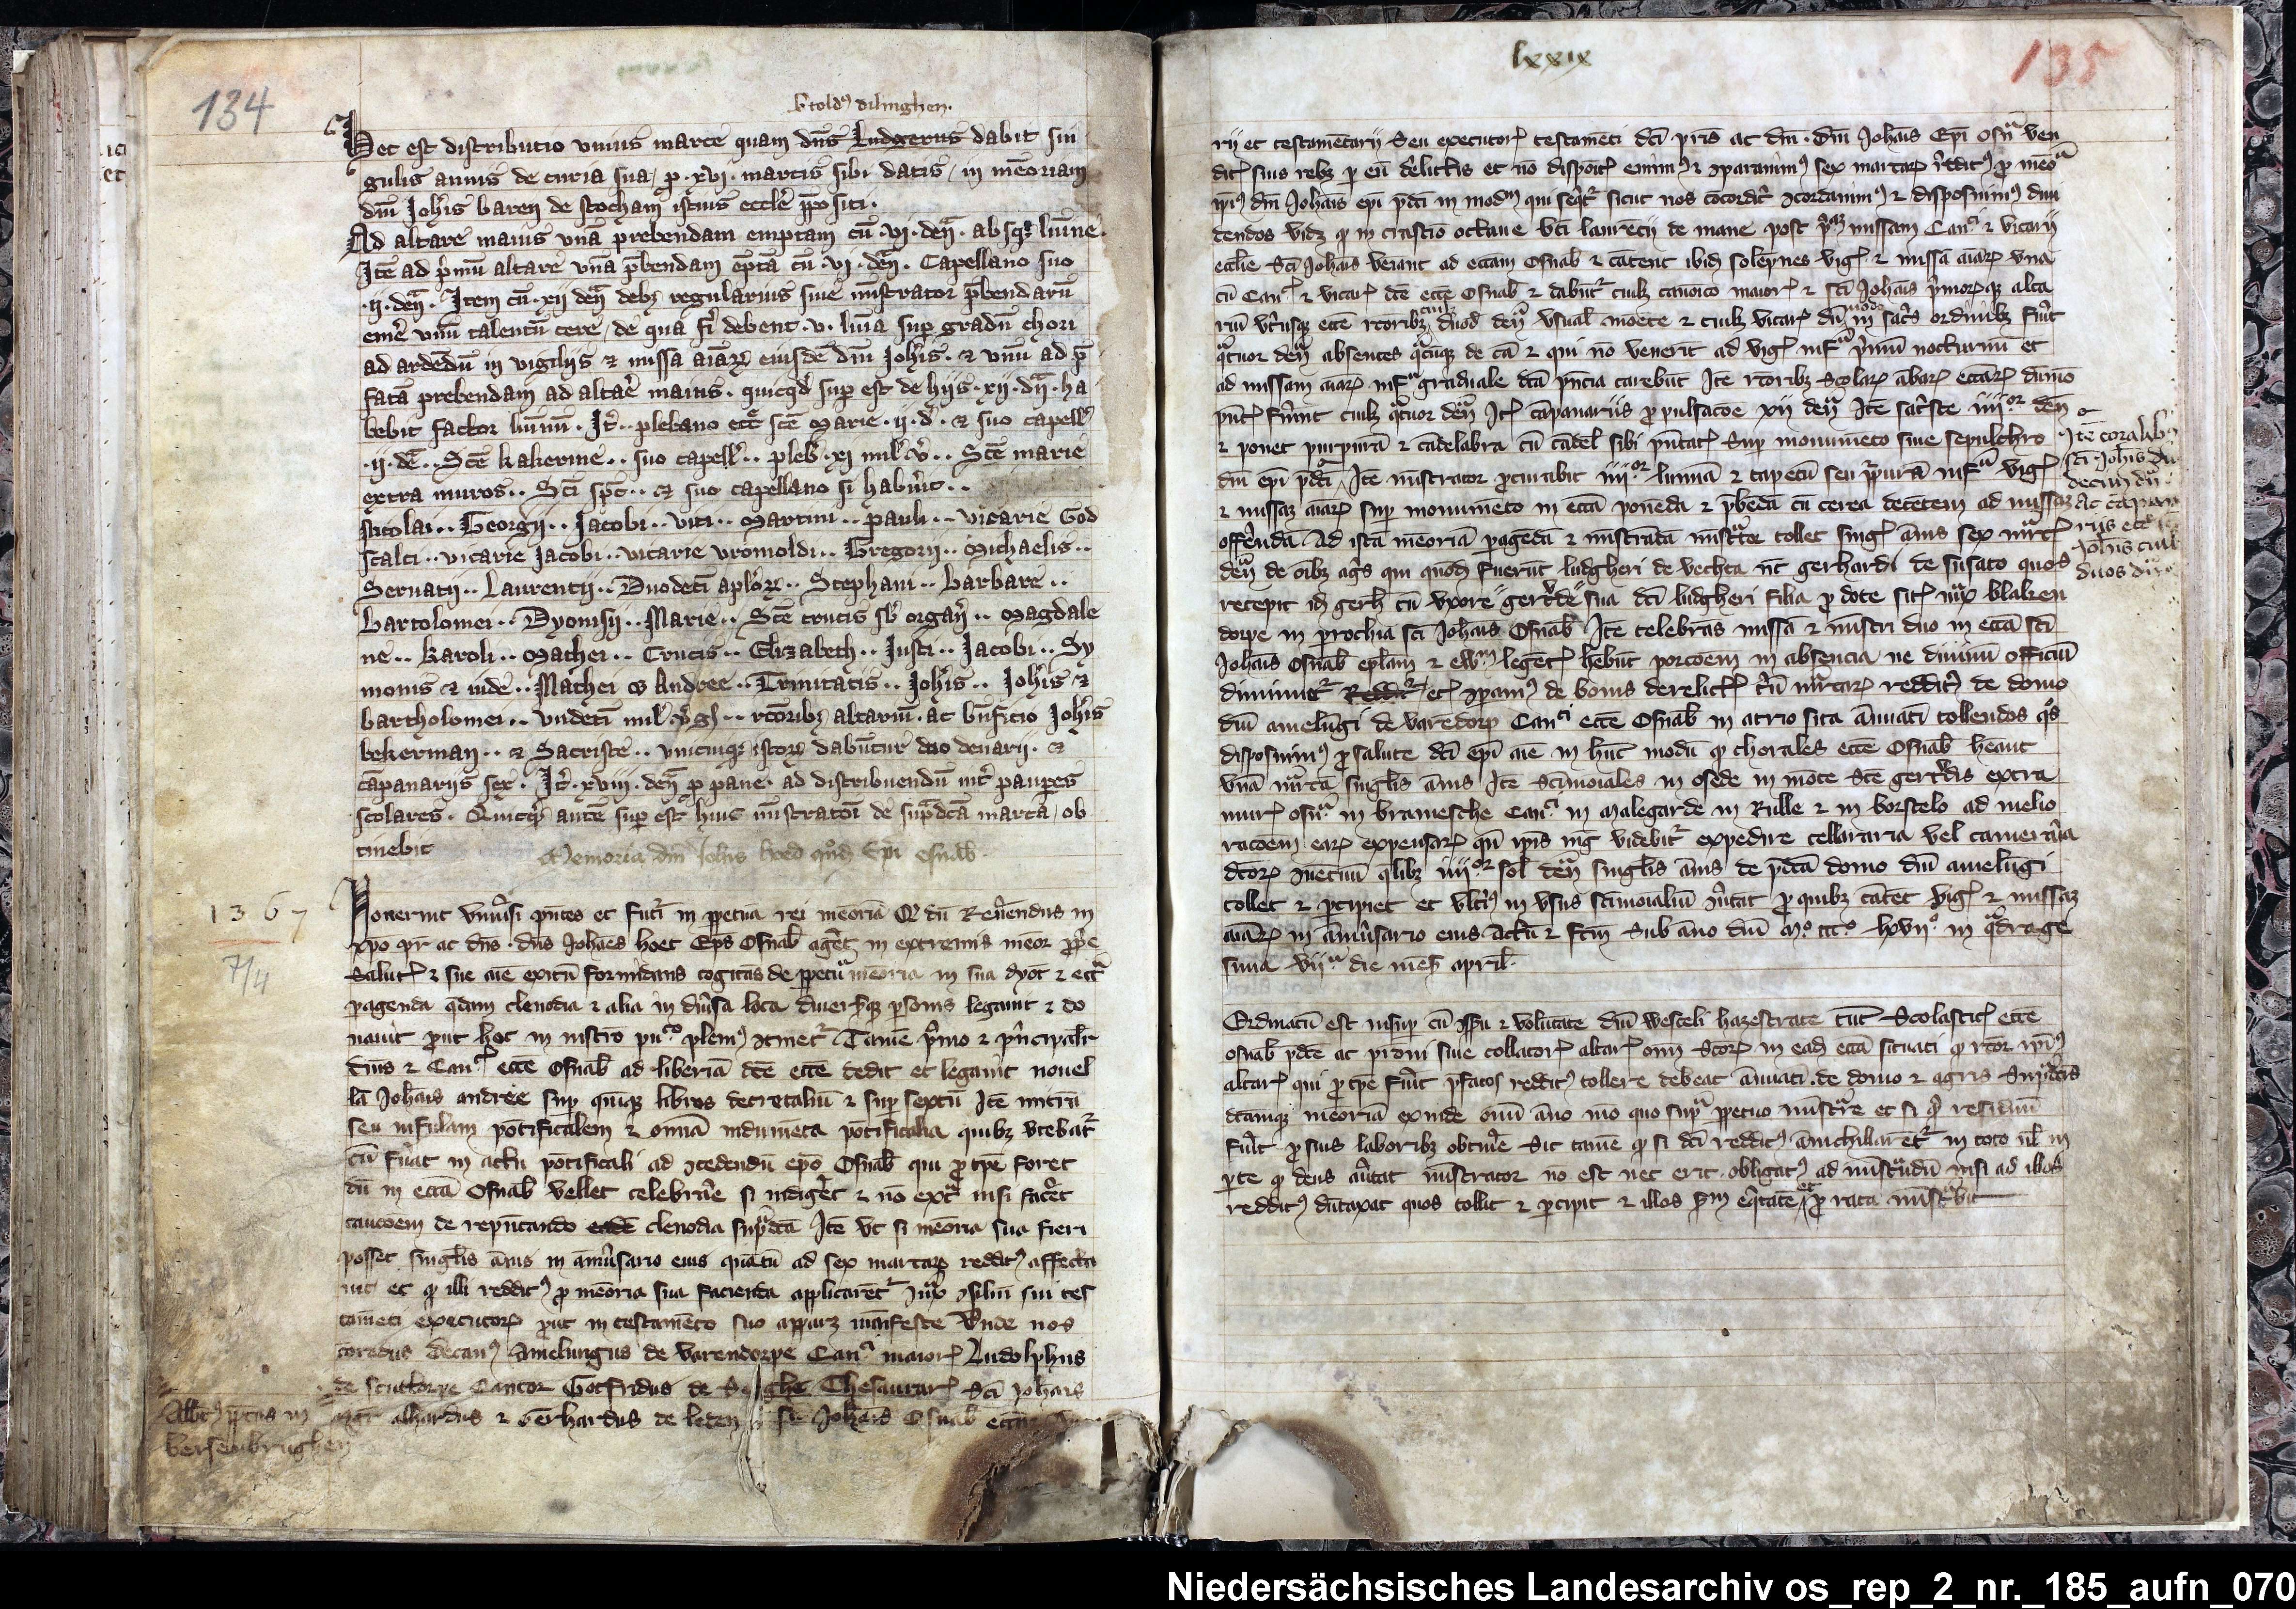 134
b'toldus dilinghen.
Hec est distributio unius marce quam dns Ludgerus dabit sin
gulis annis de curia sua, p xvj marcis sibi datis, in memoriam
dni Johis baren de stocham istius ecclie ppositi.
Ad altare maius una prebendam emptam cu vj den absq; lumine.
Ite ad pmu altare una pbendam epta cu vj den. Capellano suo
ij den. Item cu xij den debz regularius sive ministrator pbendaru
eme unu talentu cere, de qua fi debent v luia sup gradu chori
ad ardedu in vigiliis & missa aiar eiusde dni Johis. & unu ad p
fata prebendam ad altare maius. quicqd sup est de hiis xij den ha
bebit factor luminu. It plebano ecce sce Marie ij d. & suo capell
ij de.. Sce katerine.. suo capell.. pleb xj mil v.. Sce marie
extra muros.. Sci spc.. & suo capellano si habuit..
Nicolai.. Georgij.. Jacobi.. viti.. Martini.. pauli.. vicarie God
scalci.. vicarie Jacobi.. vicarie vromoldi.. Gregorij.. Michaelis..
Servatij.. Laurentij.. Duodeci aplor.. Stephani.. barbare..
bartolomei.. Dyonisij.. Marie.. Sce crucis sb organ.. Magdale
ne.. Karoli.. Mathei.. Crucis.. Elizabeth.. Justi.. Jacobi.. Sy
monis & iude.. Mathei & Andree.. Trinitatis.. Johis.. Johis &
bartholomei.. undeci mil vg.. rcoribz altariu. ac bnficio Johis
bekerman.. & Sacriste.. unicuiq; istor dabutur duo denarij. &
capanariis sex. It xviij den p pane ad distribuendu int paupes
scolares. Quicqd aute sup est huic ministratoi de supdca marca, ob
tinebit
Memoria dni Johis hoed qnd Epi osnab.
1367
7/4
Noverint univsi pntes et futi in ppetua rei memoria Qd du Reverendus in
xpo pr ac dns dns Johaes hoet Eps Osnab aget in extremis meor ppe
salut & sue aie exitu formidans cogitas de ppetua memoria in sua dyoc & ecca
pagenda qdam clenodia & alia in divsa loca diversq; psonis legavit & do
navit put hoc in instro puco plenius continet Tame pmo & pncipalr
dnis & Can ecce Osnab ad liberia dce ecce dedit et legavit novel
la Johais andree sup quiq; libros decretaliu & sup sextu Ite mitra
seu infulam potificalem & omia indumeta potificalia quibz utebat
cu fuat in actu potificali ad concededu epo Osnab qui p tpe foret
du in ecca Osnab vellet celebrare si indiget & no exta nisi facet
caucoem de repntando clenodia supdca Ite ut si memoria sua fieri
posset singlis anis in anivsario eius quatu ad sex marcar reddit affecta
vit et q illi reddit p memoria sua facienda applicaret iux consiliu sui tes
tameti executor put in testameto suo apparz manifeste Unde nos
coradus decan Amelungus de varendorpe Can maior Ludolphus
de scuttorpe Cantor Gotfridus de Thesaurar Sci Johais
Alb in magr alhardus & Gerhardus de leden Sci Johais Osnab ecciar
bersenbrughen
lxxix
135
rij et testametarij seu executor testameti dci pris ac dni dni Johais Epi Osn ven
dit suis rebz p eu delictis et no disposit emim & conparavim sex marcar reddit p meoa
ipi dni Johais epi pdci in modu qui seqt sicut nos cocordit concordavim & disposuim divi
dendos vidz q in crastio octave bti laurecij de mane post pma missam Can & vicarij
ecclie Sci Johais veiant ad eccam Osnab & catent ibid solepnes vig & missa aiar una
cu Can & vicar dce ecce Osnab & dabut cuilz canoico maior & sci Johais pmorq; alta
riu utiusq; ecce rcoribz cuilz duod den usual moete & cuilz vicar du modo in sacis ordinibz fuit
qtuor den absentes qcuq; de ca & qui no venerit ad vig infa pmu nocturnu et
ad missam aiar infa graduale dca pncia carebut Ite rcoribz Scolar abar eccar dumo
pnt fuint cuilz qtuor den It capanariis p pulsacoe xij den Ite sacste iiijor den
& ponet purpura & cadelabra cu cadel sibi pntat sup monumeto sive sepulchro
Ite coralibz sci Johis du decim den ac capan riis ecce Johis cuil duos den
dni epi pdci Ite ministrator pcurabit iiijor lumina & tapetu seu ppura infa vig
& missaz aiar sup monumeto in ecca poneda & pbeda cu cerea detetem ad missaz
offerenda Ad ista memoria pageda & ministrada ministrator tollet sing anis sex mrc
den de oibz agis qui quod fuerut ludgheri de vechta nc gerhardi de susato quos
recepit id gerh cu uxore gerde sua dci ludgheri filia p dote sit iux blaken
dorpe in prochia sci Johais Osnab Ite celebras missa & ministri duo in ecca sci
Johais Osnab eplam & ewm leget hebut porcoem in absencia ne divinu officiu
diminuet Reddit etc compam de bonis derelict triu mrcar reddit de domo
dni amelugi de varedorp Can ecce Osnab in atrio sita anuati tollendos qs
disposuim p salute dci epi aie in huc modu q chorales ecce Osnab heant
una mrca singlis anis Ite Scimoiales in osede in mote Sce gerdis extra
mur osn in bramesche Can in malegarde in Rulle & in borstelo ad melio
racoem ear expensar qn ipis mg videbit expedire cellararia vel cameraia
dcor conventuu qlibz iiijor sol den singlis anis de pdca domo dni amelugi
tollet & pcipiet et ultius in usus scimoialiu cvtat p quibz catet vig & missaz
aiar in anivsario eius Actu & fcm Sub ano dni Mo ccco lxvijo in qdrage
sima vija die mes april
Ordinatu est insup cu consensu & volutate dni wesceli hazestrate tuc Scolastic ecce
osnab pdce ac pioni sive collator altar omi Scor in ead ecca situati q rcor ipi
altar qui p tpe fuit pfatos reddit tollere debeat anuati de domo & agris supdcis
dcamq; memoria exinde omi ano mo quo supa ppetuo ministrare et si qd residuu
fuit p suis laboribz obtinere Sic tame q si dci reddit anichillaret in toto vl in
pte q deus avtat ministrator no est nec erit obligat ad ministradu nisi ad illos
reddit dutaxat quos tollit & pcipit & illos scdm eqtate et p rata ministrabit
Niedersächsisches Landesarchiv os_rep_2_nr._185_aufn_070